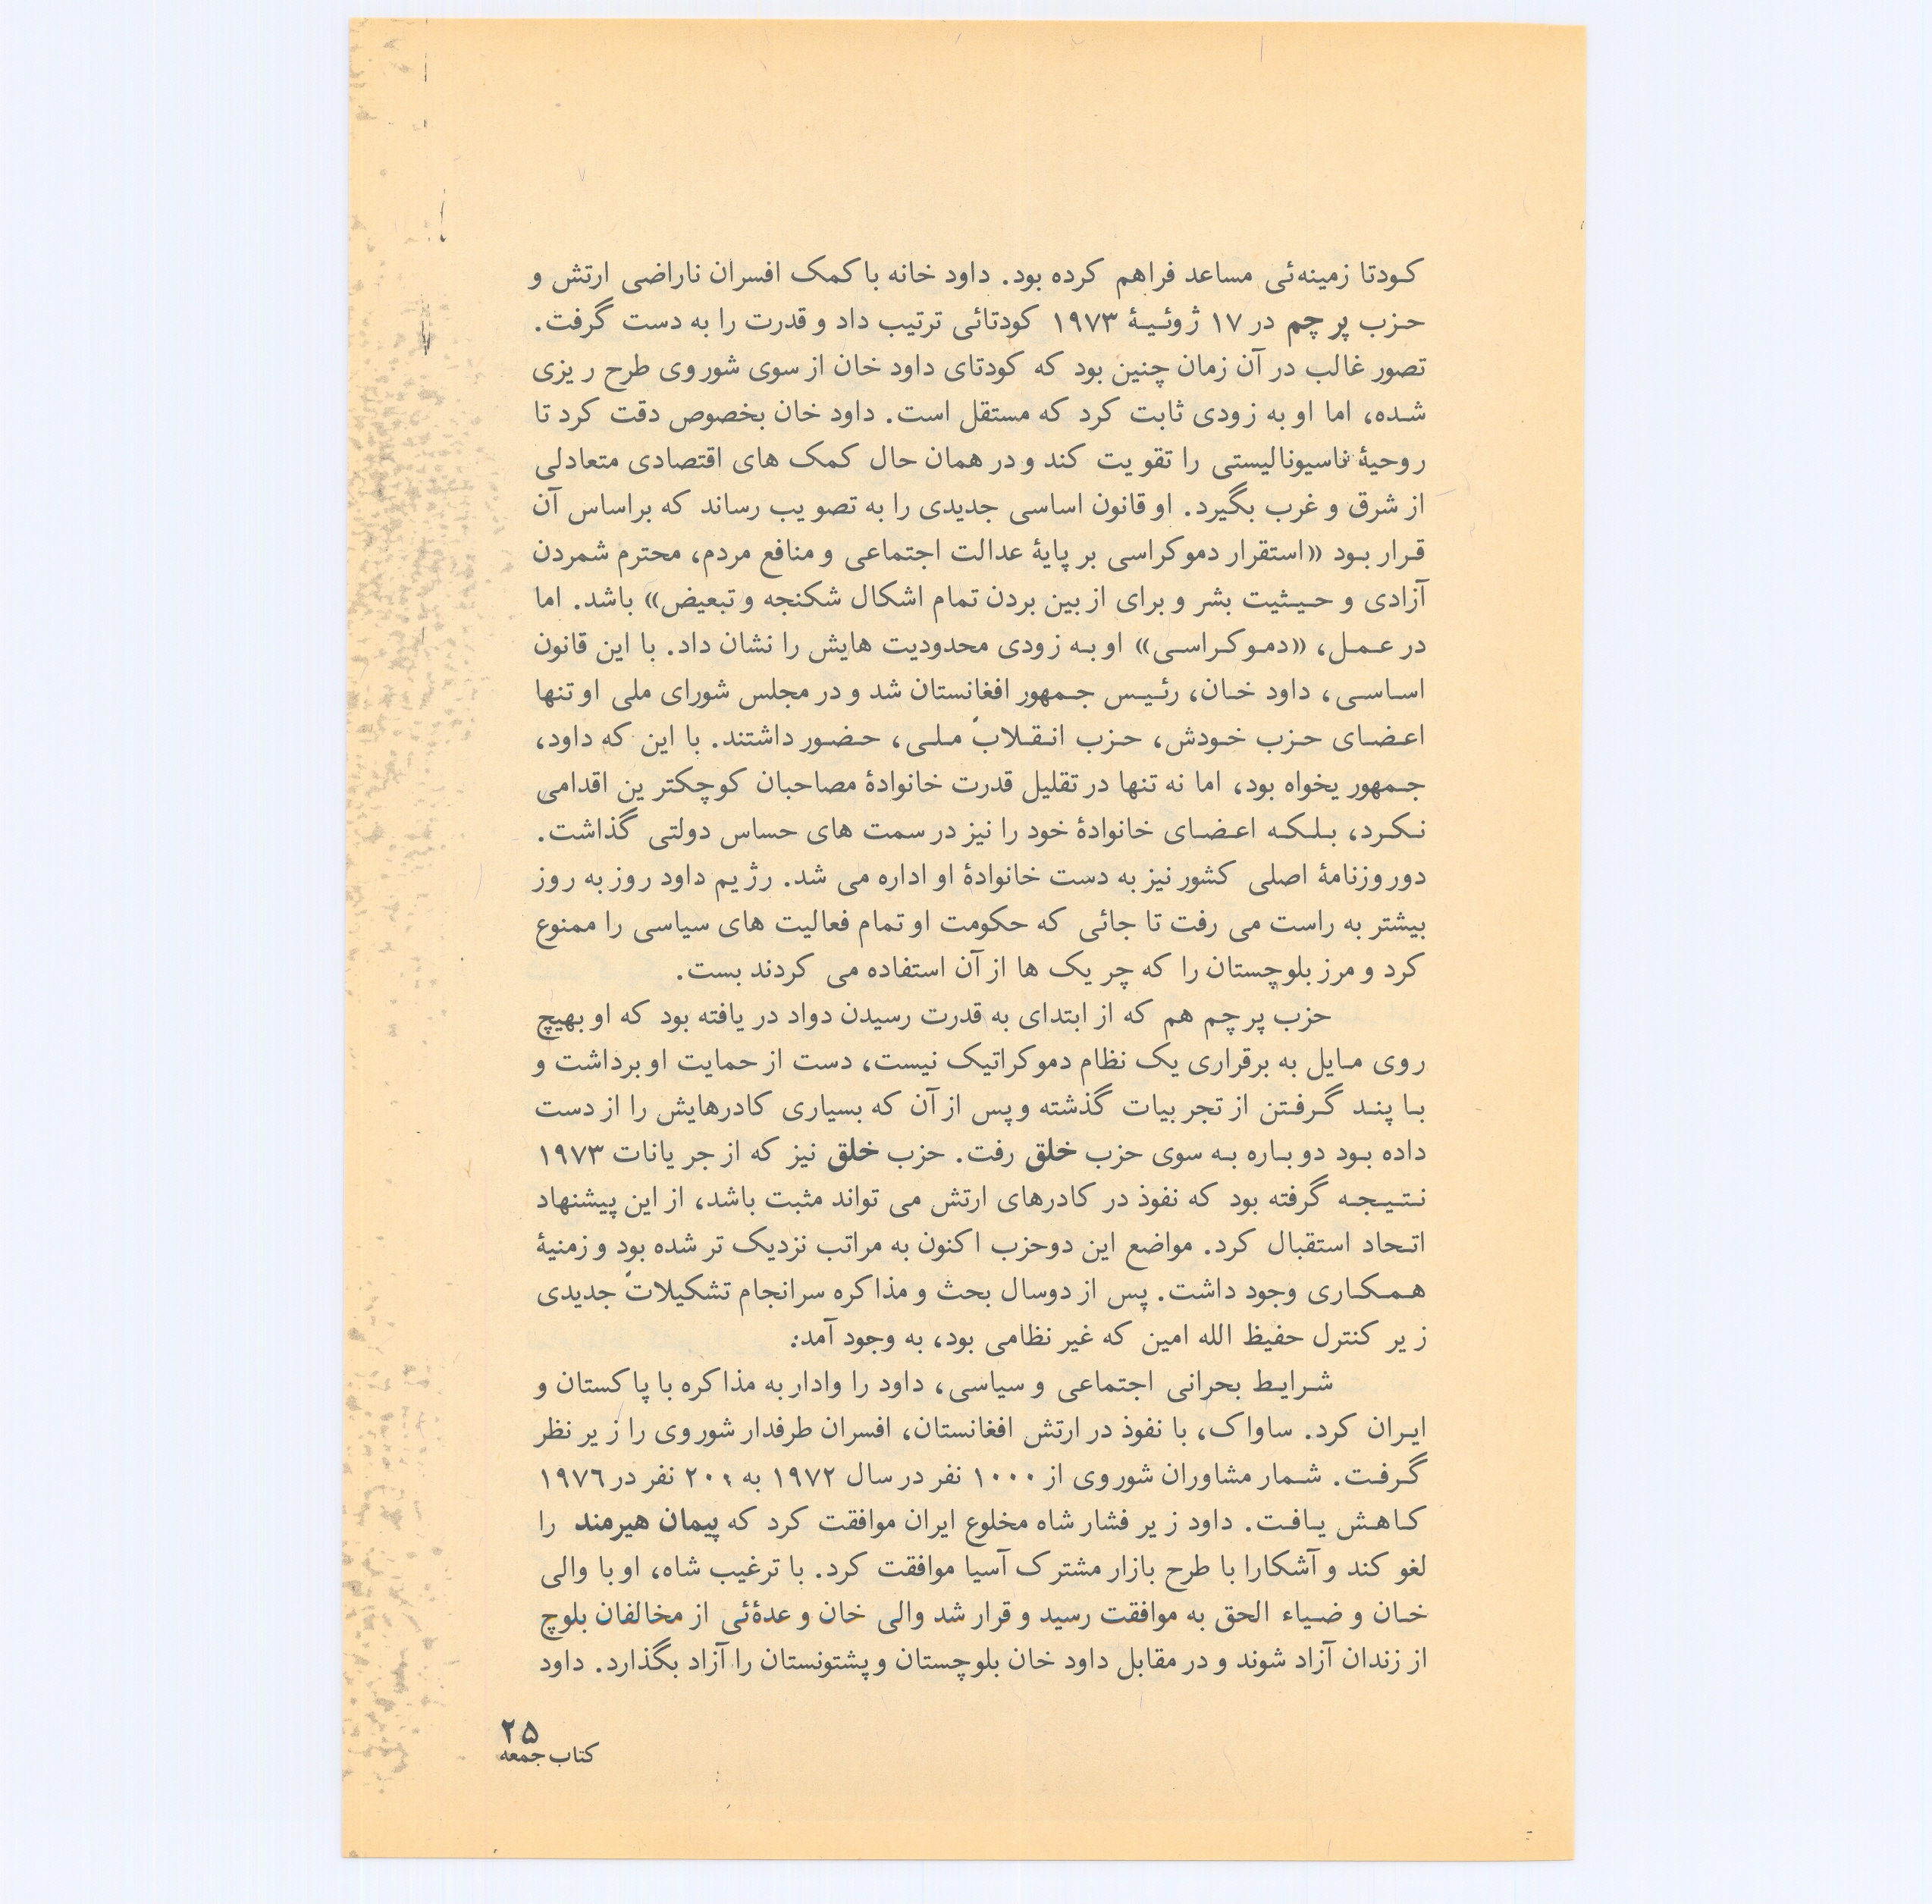 کودتا زمینه‌ئی مساعد فراهم کرده بود. داود خانه با کمک افسران ناراضی ارتش و
حزب پرچم در ۱۷ ژوئیهٔ ۱۹۷۳ کودتائی ترتیب داد و قدرت را به دست گرفت.
تصور غالب در آن زمان چنین بود که کودتای داود خان از سوی شوروی طرح ریزی
شده، اما او به زودی ثابت کرد که مستقل است. داود خان بخصوص دقت کرد تا
روحیهٔ ناسیونالیستی را تقویت کند و در همان حال کمک های اقتصادی متعادلی
از شرق و غرب بگیرد. او قانون اساسی جدیدی را به تصویب رساند که براساس آن
قرار بود «استقرار دموکراسی بر پایهٔ عدالت اجتماعی و منافع مردم، محترم شمردن
آزادی و حیثیت بشر و برای از بین بردن تمام اشکال شکنجه و تبعیض» باشد. اما
در عمل، «دموکراسی» او به زودی محدودیت هایش را نشان داد. با این قانون
اساسی، داود خان، رئیس جمهور افغانستان شد و در مجلس شورای ملی او تنها
اعضای حزب خودش، حزب انقلاب ملی، حضور داشتند. با این که داود،
جمهوریخواه بود، اما نه تنها در تقلیل قدرت خانوادهٔ مصاحبان کوچکترین اقدامی
نکرد، بلکه اعضای خانوادهٔ خود را نیز در سمت های حساس دولتی گذاشت.
دوروزنامهٔ اصلی کشور نیز به دست خانوادهٔ او اداره می شد. رژیم داود روز به روز
بیشتر به راست می رفت تا جائی که حکومت او تمام فعالیت های سیاسی را ممنوع
کرد و مرز بلوچستان را که چریک ها از آن استفاده می کردند بست.
حزب پرچم هم که از ابتدای به قدرت رسیدن دواد دریافته بود که او بهیچ
روی مایل به برقراری یک نظام دموکراتیک نیست، دست از حمایت او برداشت و
با پند گرفتن از تجربیات گذشته و پس از آن که بسیاری کادرهایش را از دست
داده بود دوباره به سوی حزب خلق رفت. حزب خلق نیز که از جریانات ۱۹۷۳
نتیجه گرفته بود که نفوذ در کادرهای ارتش می تواند مثبت باشد، از این پیشنهاد
اتحاد استقبال کرد. مواضع این دوحزب اکنون به مراتب نزدیک تر شده بود و زمنیهٔ
همکاری وجود داشت. پس از دوسال بحث و مذاکره سرانجام تشکیلات جدیدی
زیر کنترل حفیظ الله امین که غیر نظامی بود، به وجود آمد:
شرایط بحرانی اجتماعی و سیاسی، داود را وادار به مذاکره با پاکستان و
ایران کرد. ساواک، با نفوذ در ارتش افغانستان، افسران طرفدار شوروی را زیر نظر
گرفت. شمار مشاوران شوروی از ۱۰۰۰ نفر در سال ۱۹۷۲ به ۲۰۰ نفر در ۱۹۷۶
کاهش یافت. داود زیر فشار شاه مخلوع ایران موافقت کرد که پیمان هیرمند را
لغو کند و آشکارا با طرح بازار مشترک آسیا موافقت کرد. با ترغیب شاه، او با والی
خان و ضیاء الحق به موافقت رسید و قرار شد والی خان و عده‌ئی از مخالفان بلوچ
از زندان آزاد شوند و در مقابل داود خان بلوچستان و پشتونستان را آزاد بگذارد. داود
۲۵
کتاب جمعه